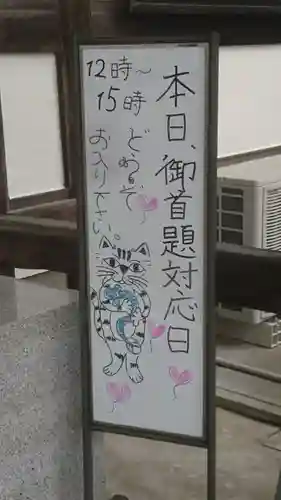 本日、御首題対応日
12時～
15時
どうぞ
お入り下さい。